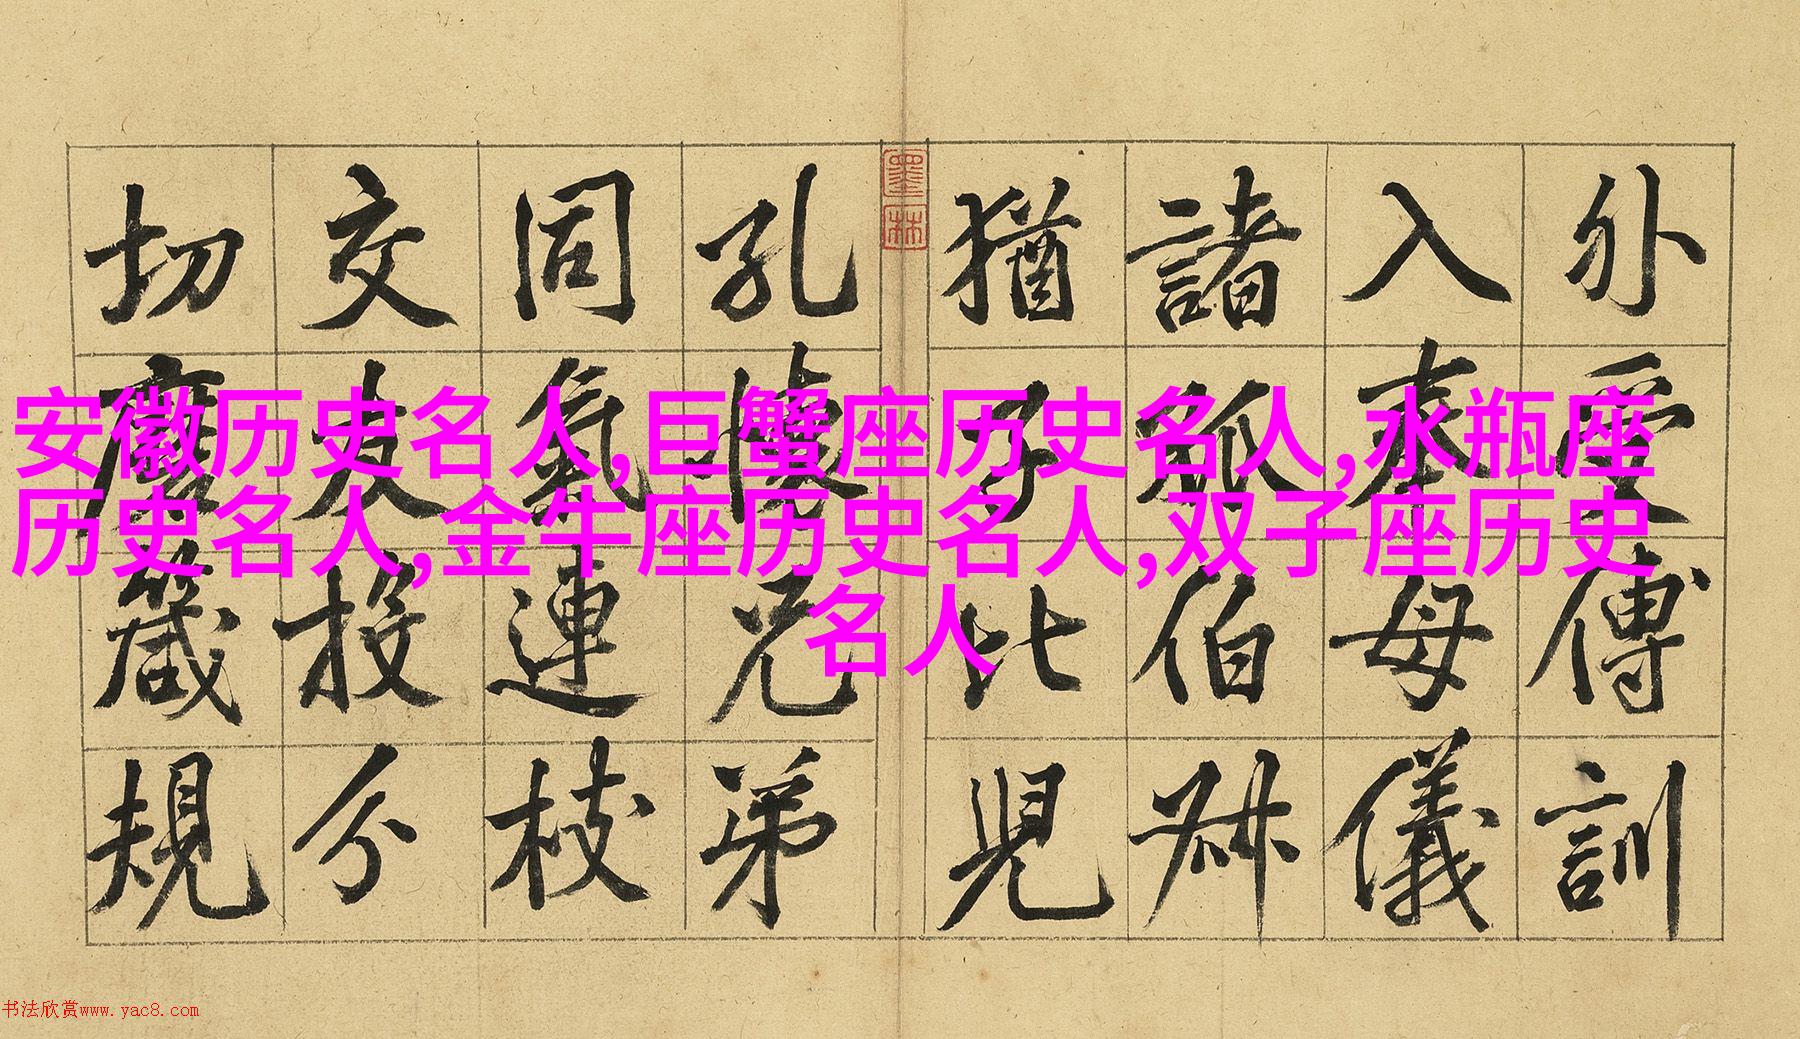 安徽历史名人,巨蟹座历史名人,水瓶座
历史名人,金牛座历史名人,双子座历史
名人
外受傅訓
入奉母儀
諸孤伯叔
猶子比兒
孔懷兄弟
同氣連枝
交友投分
切磨箴規
墨林
书法欣赏www.yac8.com